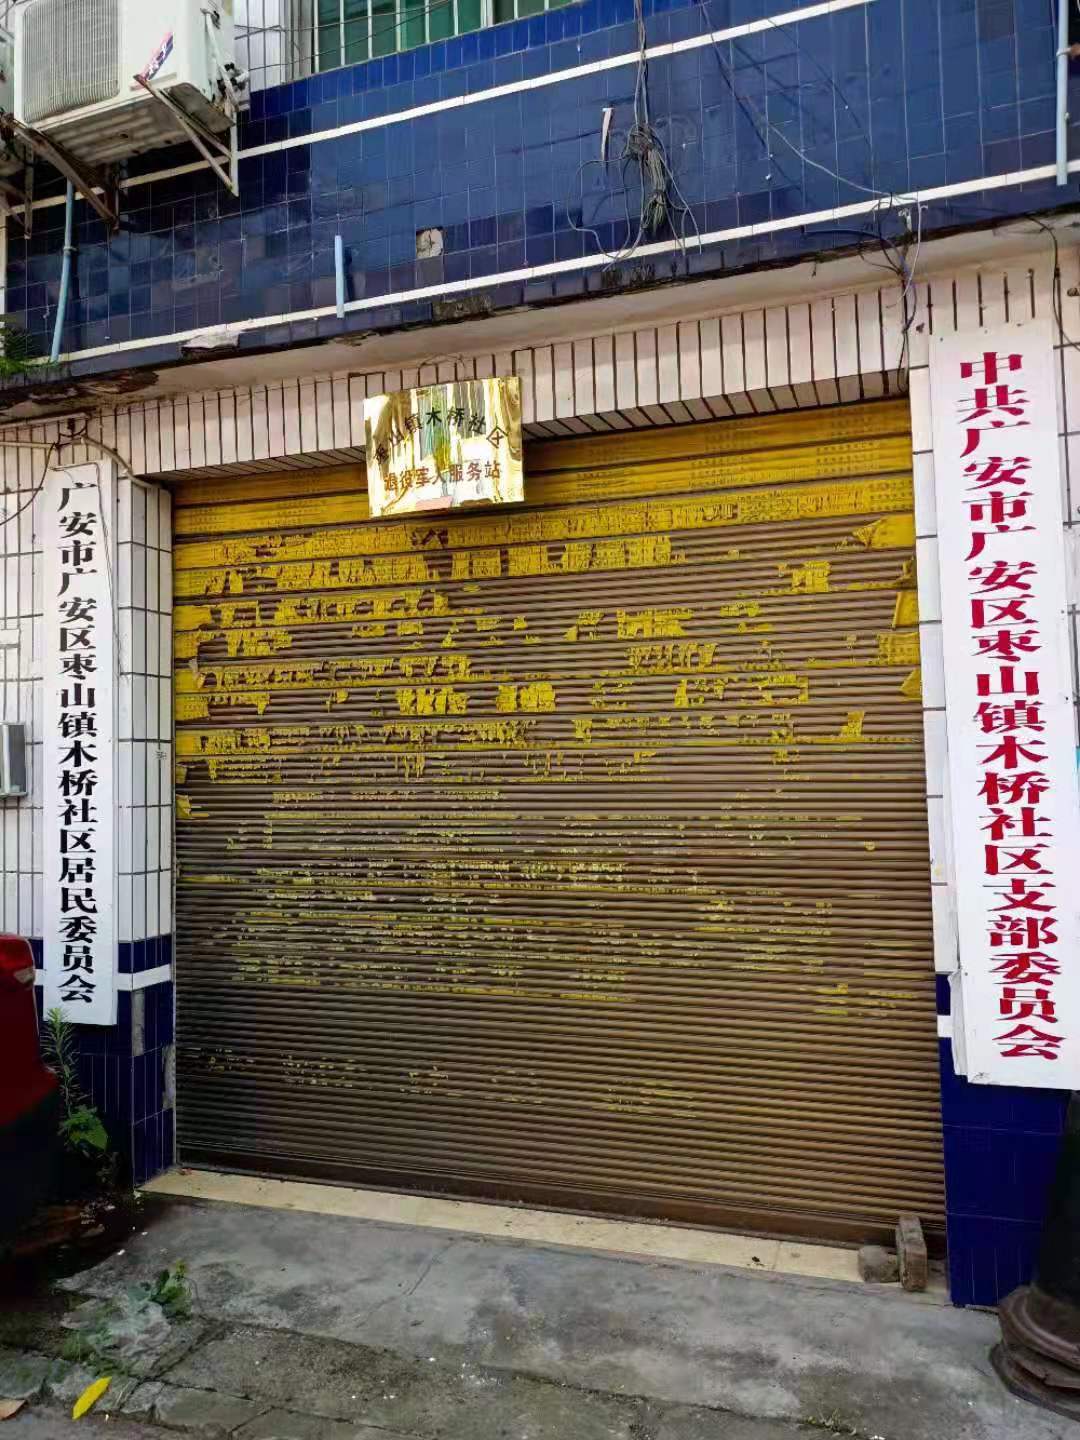 枣山镇木桥社区
退役军人服务站
广安市广安区枣山镇木桥社区居民委员会
中共广安市广安区枣山镇木桥社区支部委员会